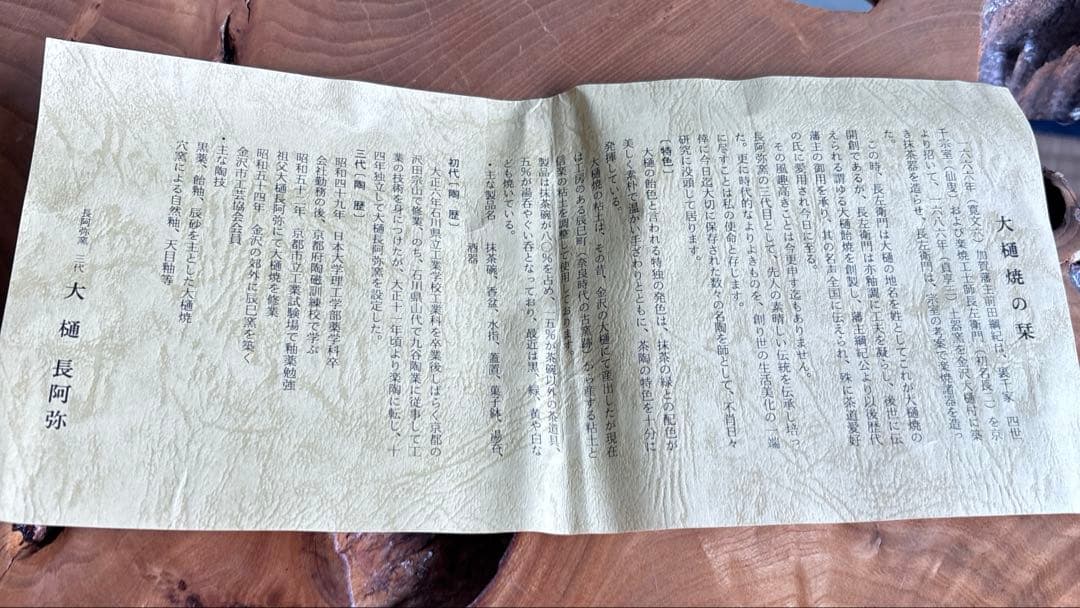 大樋焼の栞
一六六六年（寛文六）加賀藩主前田綱紀は、裏千家 四世
千宗室（仙叟）および楽焼工士師長左衛門（初名長二）を京
より招いて、一六八六年（貞享三）土器窯を金沢大樋村に築
き抹茶器を造らせ、長左衛門は、宗室の考案で楽焼諸器を造っ
た。
この時、長左衛門は大樋の地名を姓としてこれが大樋焼の
開創であるが、長左衛門は亦釉薬に工夫を凝らし、後世に伝
えられる謂ゆる大樋飴焼を創製し、藩主綱紀公より以後歴代
藩主の御用を承り、其の名声全国に伝えられ、殊に茶道愛好
の氏に愛用され今日に至る。
その風趣高きことは今更申す迄もありません。
長阿弥窯の三代目として、先人の素晴しい伝統を伝承し持っ
た。更に時代的なよりよきものを、創り世の生活美化の一端
に尽すことは私の使命と存じます。
倖に今日迄大切に保存された数々の名陶を師として、不肖日々
研究に没頭して居ります。
〔特色〕
大樋の飴色と言われる特独の発色は、抹茶の緑との配色が
美しく素朴で温かい手ざわりとともに、茶陶の特色を十分に
発揮している。
大樋焼の粘土は、その昔、金沢の大樋にて産出したが現在
は工房のある辰巳町（奈良時代の古窯跡）から産する粘土と
信楽の粘土を調整して使用しております。
製品は抹茶碗が八〇％を占め、一五％が茶碗以外の茶道具、
五％が湯呑やぐい呑となっており、最近は黒、緑、黄や白な
ども焼いている。
・主な製品名 抹茶碗、香盆、水指、蓋置、菓子鉢、湯呑、
酒器
初代〔陶 歴〕
大正六年石川県立工業学校工業科を卒業後しばらく京都の
沢田宗山で修業、のち、石川県山代で九谷陶業に従事して工
業の技術を身につけたが、大正十一年頃より楽陶に転し、十
四年独立して大樋長阿弥窯を設定した。
三代〔陶 歴〕
昭和四十九年 日本大学理工学部薬学科卒
会社勤務の後、京都府陶磁訓練校で学ぶ
昭和五十二年 京都市立工業試験場で釉薬勉強
祖父大樋長阿弥にて大樋焼を修業
昭和五十四年 金沢の郊外に辰巳窯を築く
金沢市工芸協会会員
・主な陶技
黒薬、飴釉、辰砂を主とした大樋焼
穴窯による自然釉、天目釉等
長阿弥窯 三代 大樋 長阿弥